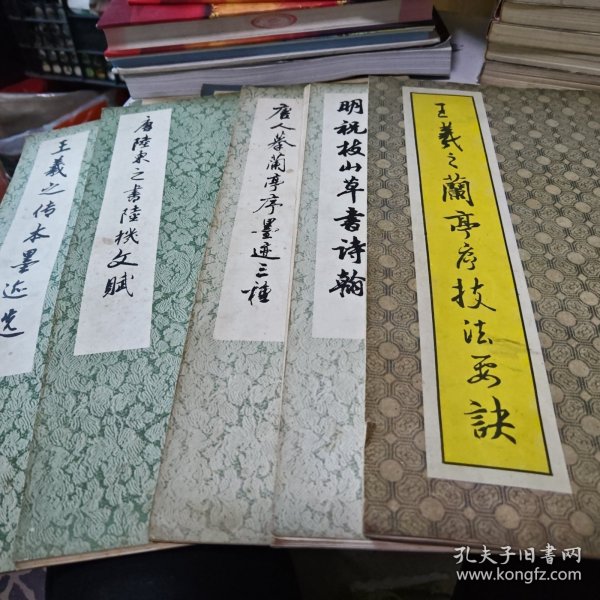 王羲之传本墨迹选
唐陸柬之書陸機文賦
唐人摹蘭亭序墨迹三種
明祝枝山草書诗翰
王羲之蘭亭序技法要訣
孔夫子旧书网
www.kongfz.com